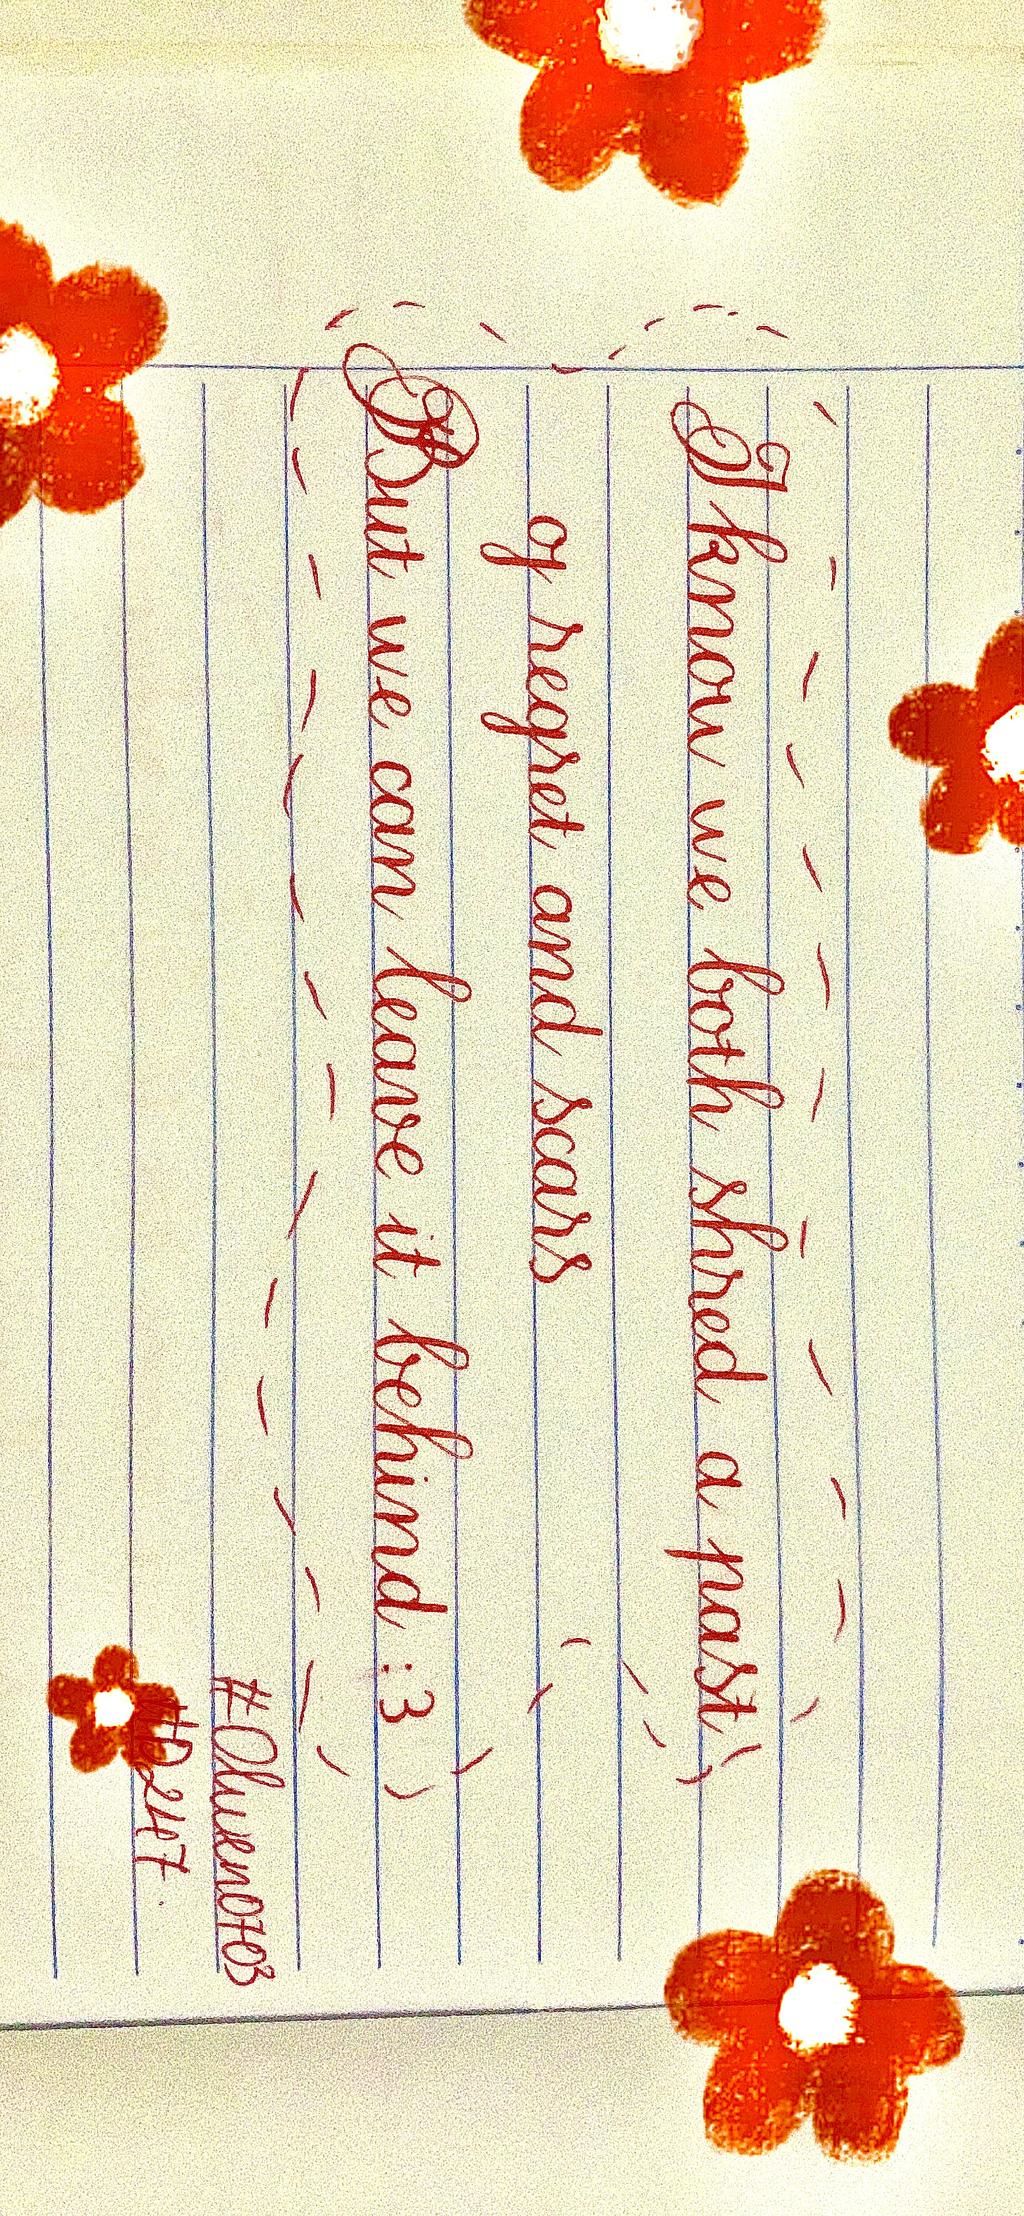 I know we both shred a past
of regret and scars
But we can leave it behind :3
#D2467.